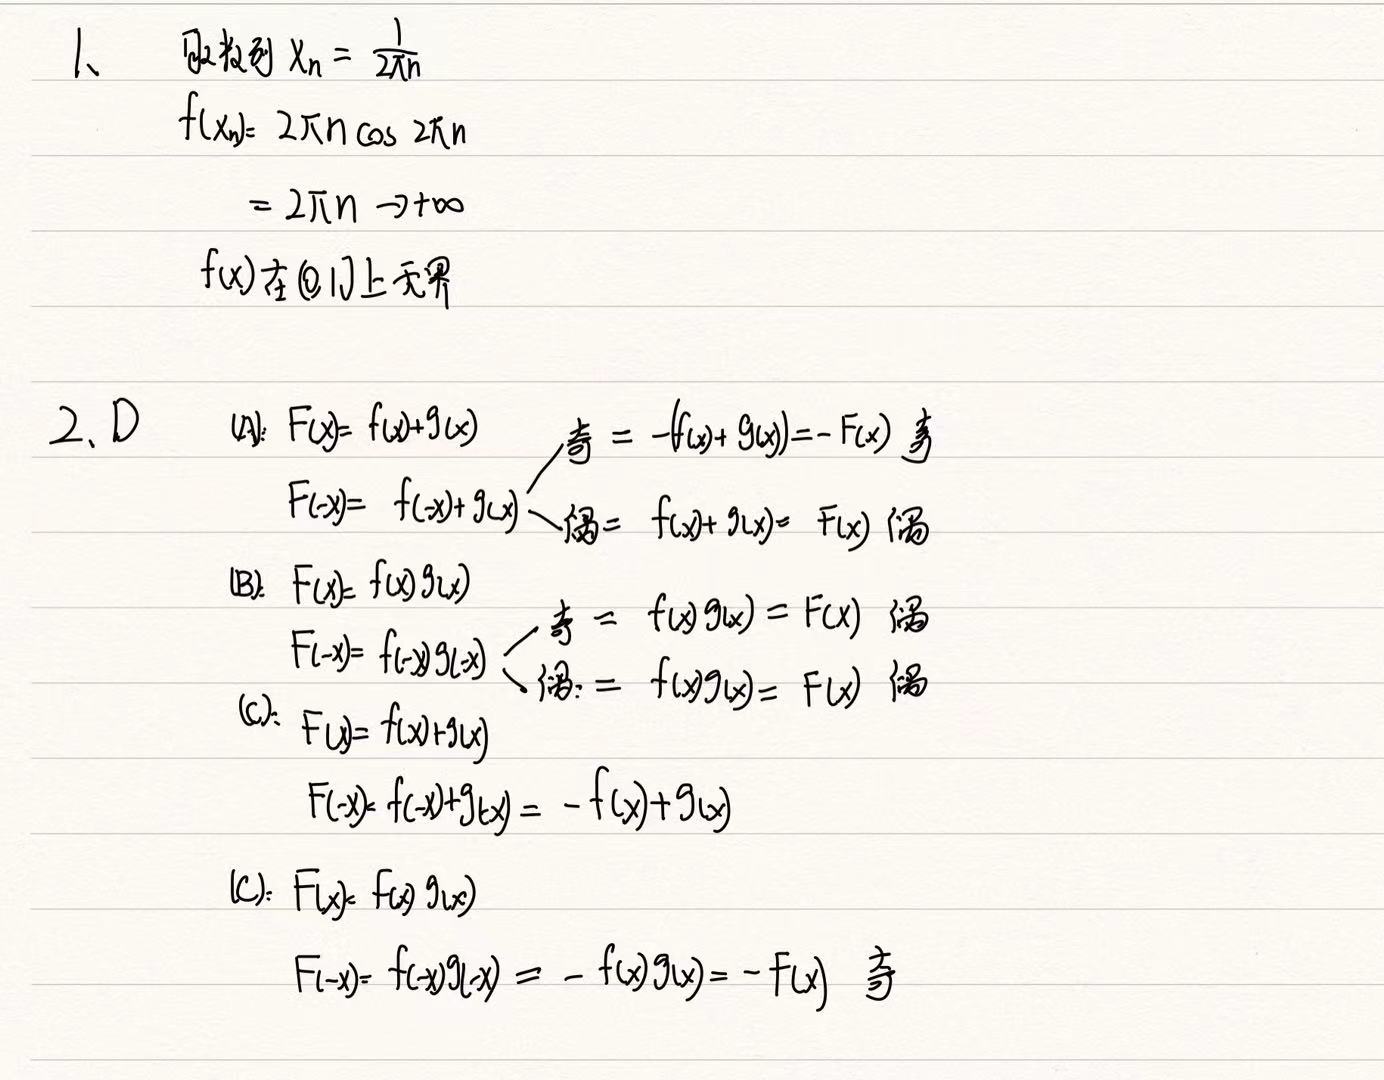 1、 取数列 xₙ = 1/2πn
f(xₙ)= 2πn cos 2πn
= 2πn →+∞
f(x)在(0,1]上无界
2、D (A): F(x)= f(x)+g(x)
奇 = -(f(x)+g(x))=-F(x) 奇
F(-x)= f(-x)+g(x)
偶= f(x)+g(x)= F(x) 偶
(B): F(x)= f(x)g(x)
奇 = f(x)g(x) = F(x) 偶
F(-x)= f(-x)g(-x)
偶: = f(x)g(x)= F(x) 偶
(C): F(x)= f(x)+g(x)
F(-x)= f(-x)+g(-x) = -f(x)+g(x)
(C): F(x)= f(x) g(x)
F(-x)= f(-x)g(-x) = -f(x)g(x)= -F(x) 奇